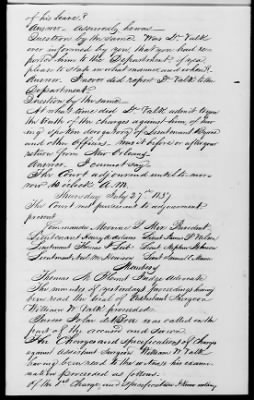 of his leave?
Answer. Assuredly
Question by the same. Was Dr. Valk
ever informed by you, that you had re-
ported him to the Department; if yea
please to state in what manner and when?
Answer. I never did report Dr. Valk to the
Department?
Question by the same
At what time did Dr. Valk admit to you
the truth of the charges against him, of hav-
ing spoken derogatory of Lieutenant
and other Officers. Was it before or after your
return from New Orleans
Answer. I cannot say
The Court adjourned until to mor-
row 10 o'clock A.M.
Thursday July 27th 1837
The Court met pursuant to adjournment
present
Commodore President
Lieutenant Lieut
Lieutenant Thomas Lieut Stephen Johnson
Lieutenant Lieut Samuel
Members
Thomas Blount Judge Advocate
The minutes of yesterdays proceedings having
been read the trial of Assistant Surgeon
William W Valk proceeded.
was called on the
part of the accused and sworn
The Charges and specifications of Charges
against Assistant Surgeon William W Valk
having been read to the witness his exam-
ination proceeded as follows.
Of the 2nd Charge, and specification I know nothing